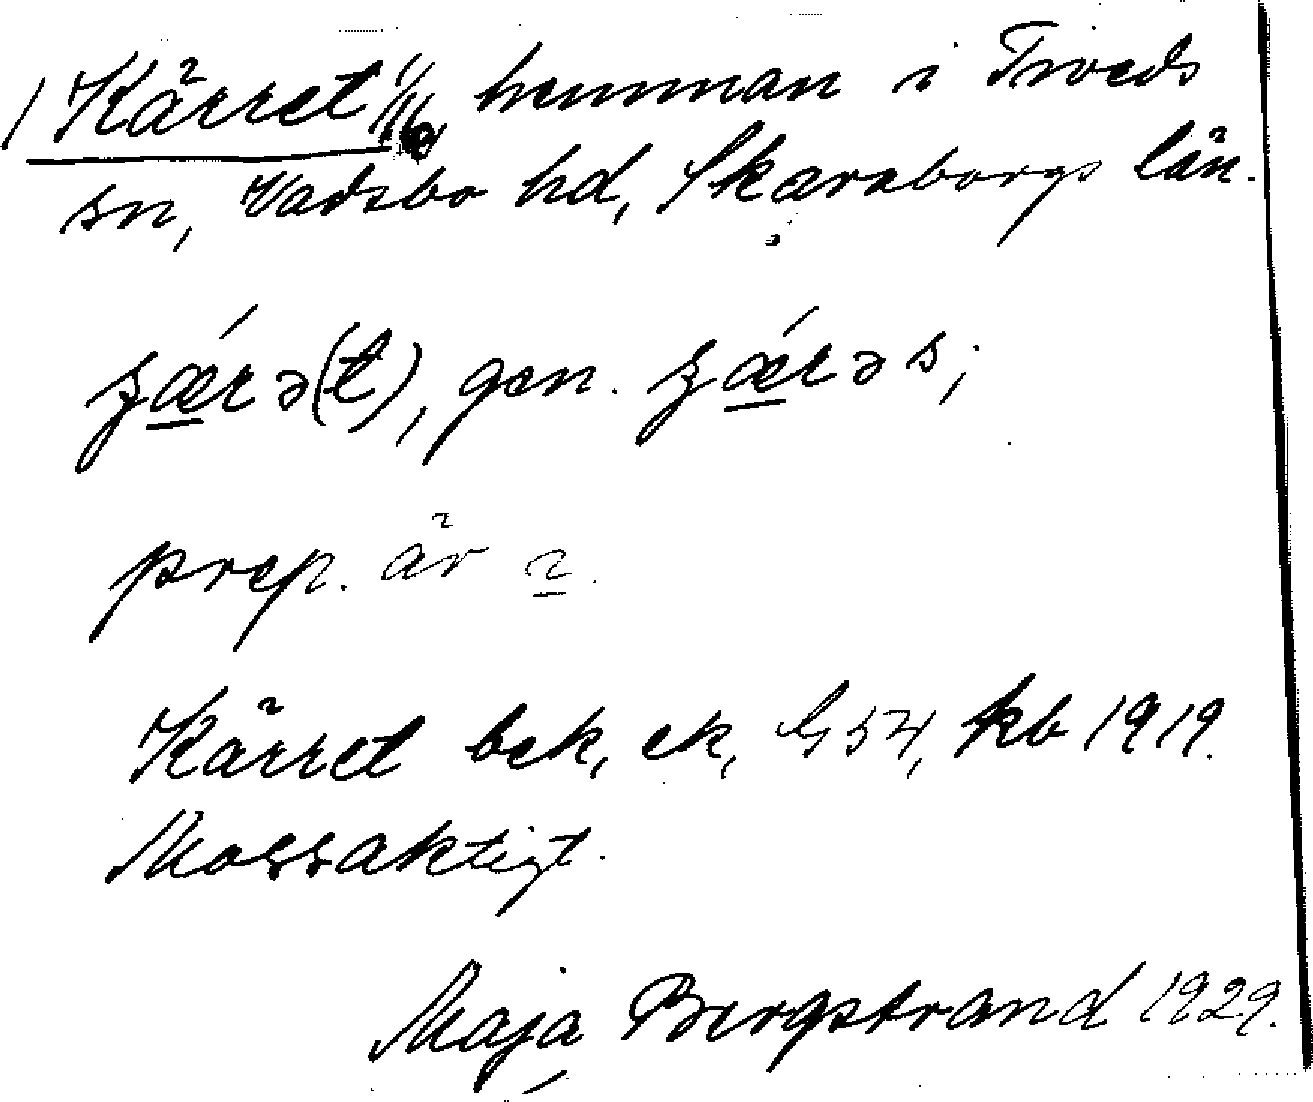 Kärret 1/16 hemman i Tiveds
sn, Vadsbo hd, Skaraborgs län.
ʒærə(t), gen. ʒærəs;
prep. är
Kärret bek, ek, G 54, kb 1919.
Mossaktigt.
Maja Bergstrand 1929.